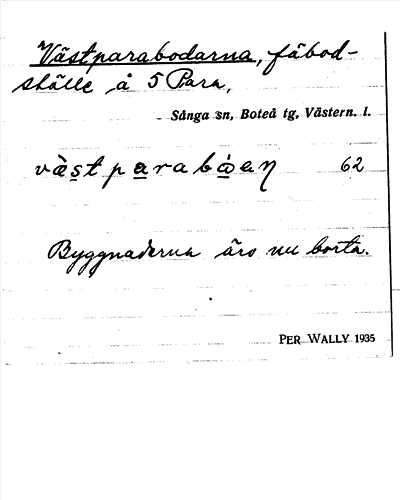 Västparabodarna, fäbod-
ställe å 5 Para,
Sånga sn, Boteå tg, Västern. l.
vὰs̱t pa̱rabώ̱an 62
Byggnaderna äro nu borta.
PER WALLY 1935